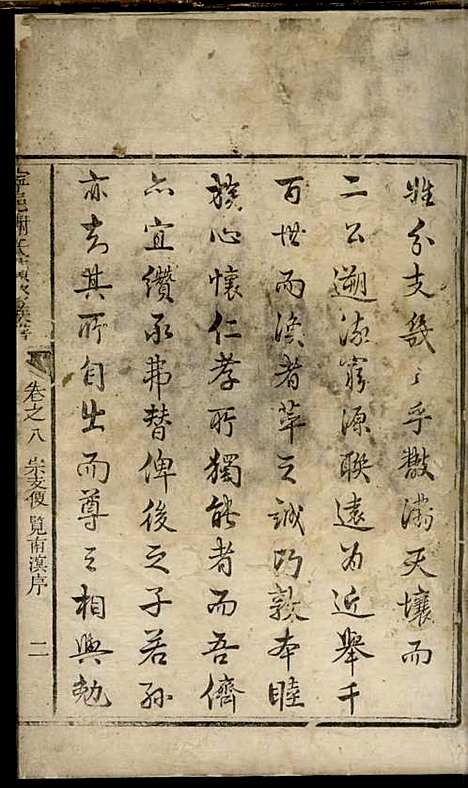 雖分支幾〻乎散滿天壤而
二公遡流窮源聯遠为近舉千
百世而渙者萃之誠巧敦本睦
族心懷仁孝所獨能者而吾儕
亦宜纘承弗替俾後之子若孫
亦知其所自出而尊之相與勉
卷之八 宗支便覽南溟序 二